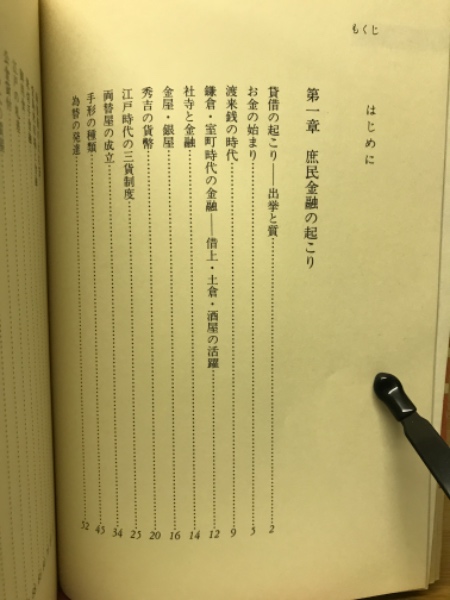 もくじ
はじめに
第一章 庶民金融の起こり
貸借の起こり——出挙と質 2
お金の始まり 5
渡来銭の時代 9
鎌倉・室町時代の金融——借上・土倉・酒屋の活躍 12
社寺と金融 14
金屋・銀屋 16
秀吉の貨幣 20
江戸時代の三貨制度 25
両替屋の成立 34
手形の種類 45
為替の発達 52